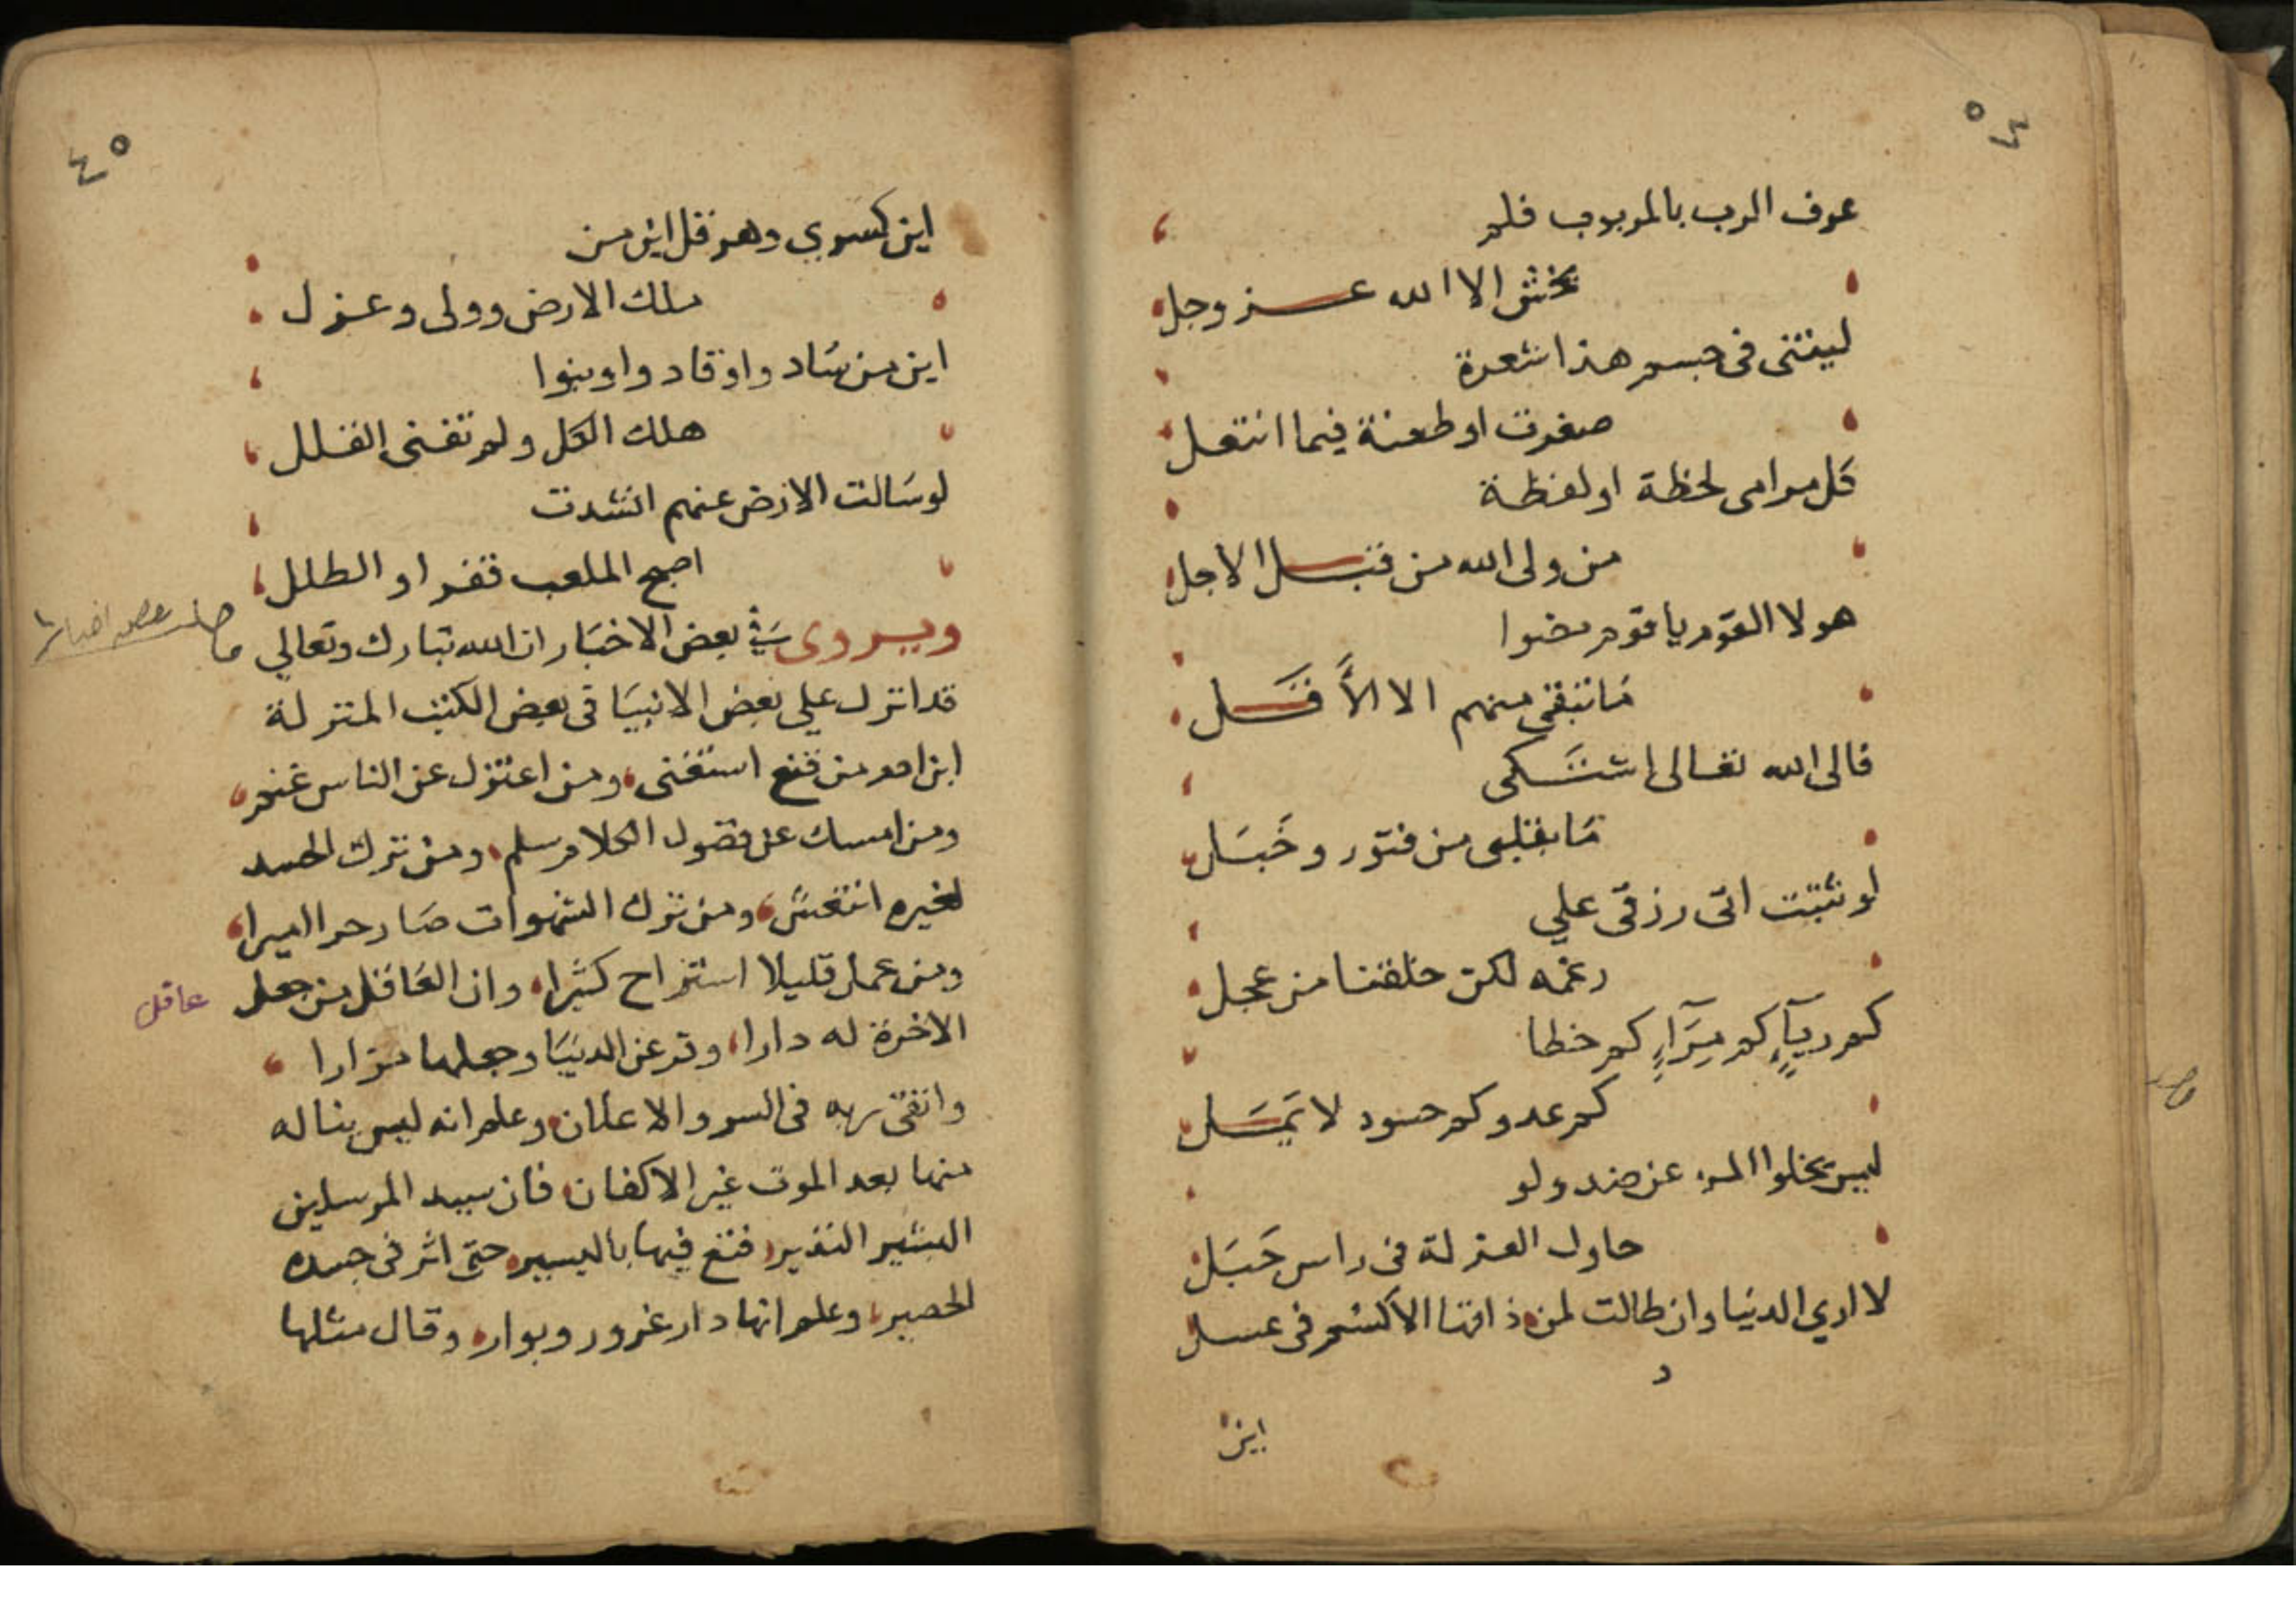 عرف الرب بالمربوب فلم
يخش الا الله عز وجل
ليتني في جسم هذا شعرة
صغرت او طعنة فيما انتعل
كل مرامى لحظة او لفظة
من ولى الله من قبل الاجل
هولا القوم يا قوم مضوا
ما تبقى منهم الا الاقل
فالى الله تعالى اشتكى
ما بقلبى من فتور وخبل
لو تثبت اتى رزقى علي
رغمه لكن خلقنا من عجل
كم رياء كم مراء كم خطا
كم عدو كم حسود لا يمل
ليس يخلوا المرء عن ضد ولو
حاول العزلة فى راس جبل
لا اري الدنيا وان طالت لمن ذاقها الا كسم فى عسل
اين
٤٥
اين كسري وهرقل اين من
ملك الارض وولى وعزل
اين من شاد واوقاد واوبنوا
هلك الكل ولم تغنى القلل
لو سالت الارض عنهم انشدت
اصبح الملعب قفرا والطلل
ويروى في بعض الاخبار ان الله تبارك وتعالي
قد انزل علي بعض الانبيا فى بعض الكتب المنزلة
ابن ادم من قنع استغنى ومن اعتزل عن الناس غنم
ومن امسك عن فضول الكلام سلم ومن ترك الحسد
لغيره انتعش ومن ترك الشهوات صار حرا اميرا
ومن عمل قليلا استراح كثيرا وان العاقل من جعل
عاقل
الاخرة له دارا وتر عن الدنيا وجعلها مزارا
واتقى ربه فى السر والاعلان وعلم انه ليس يناله
منها بعد الموت غير الاكفان فان سيد المرسلين
البشير النذير قنع فيها باليسير حتى اثر فى جسده
الحصير وعلم انها دار غرور وبوار وقال مثلها